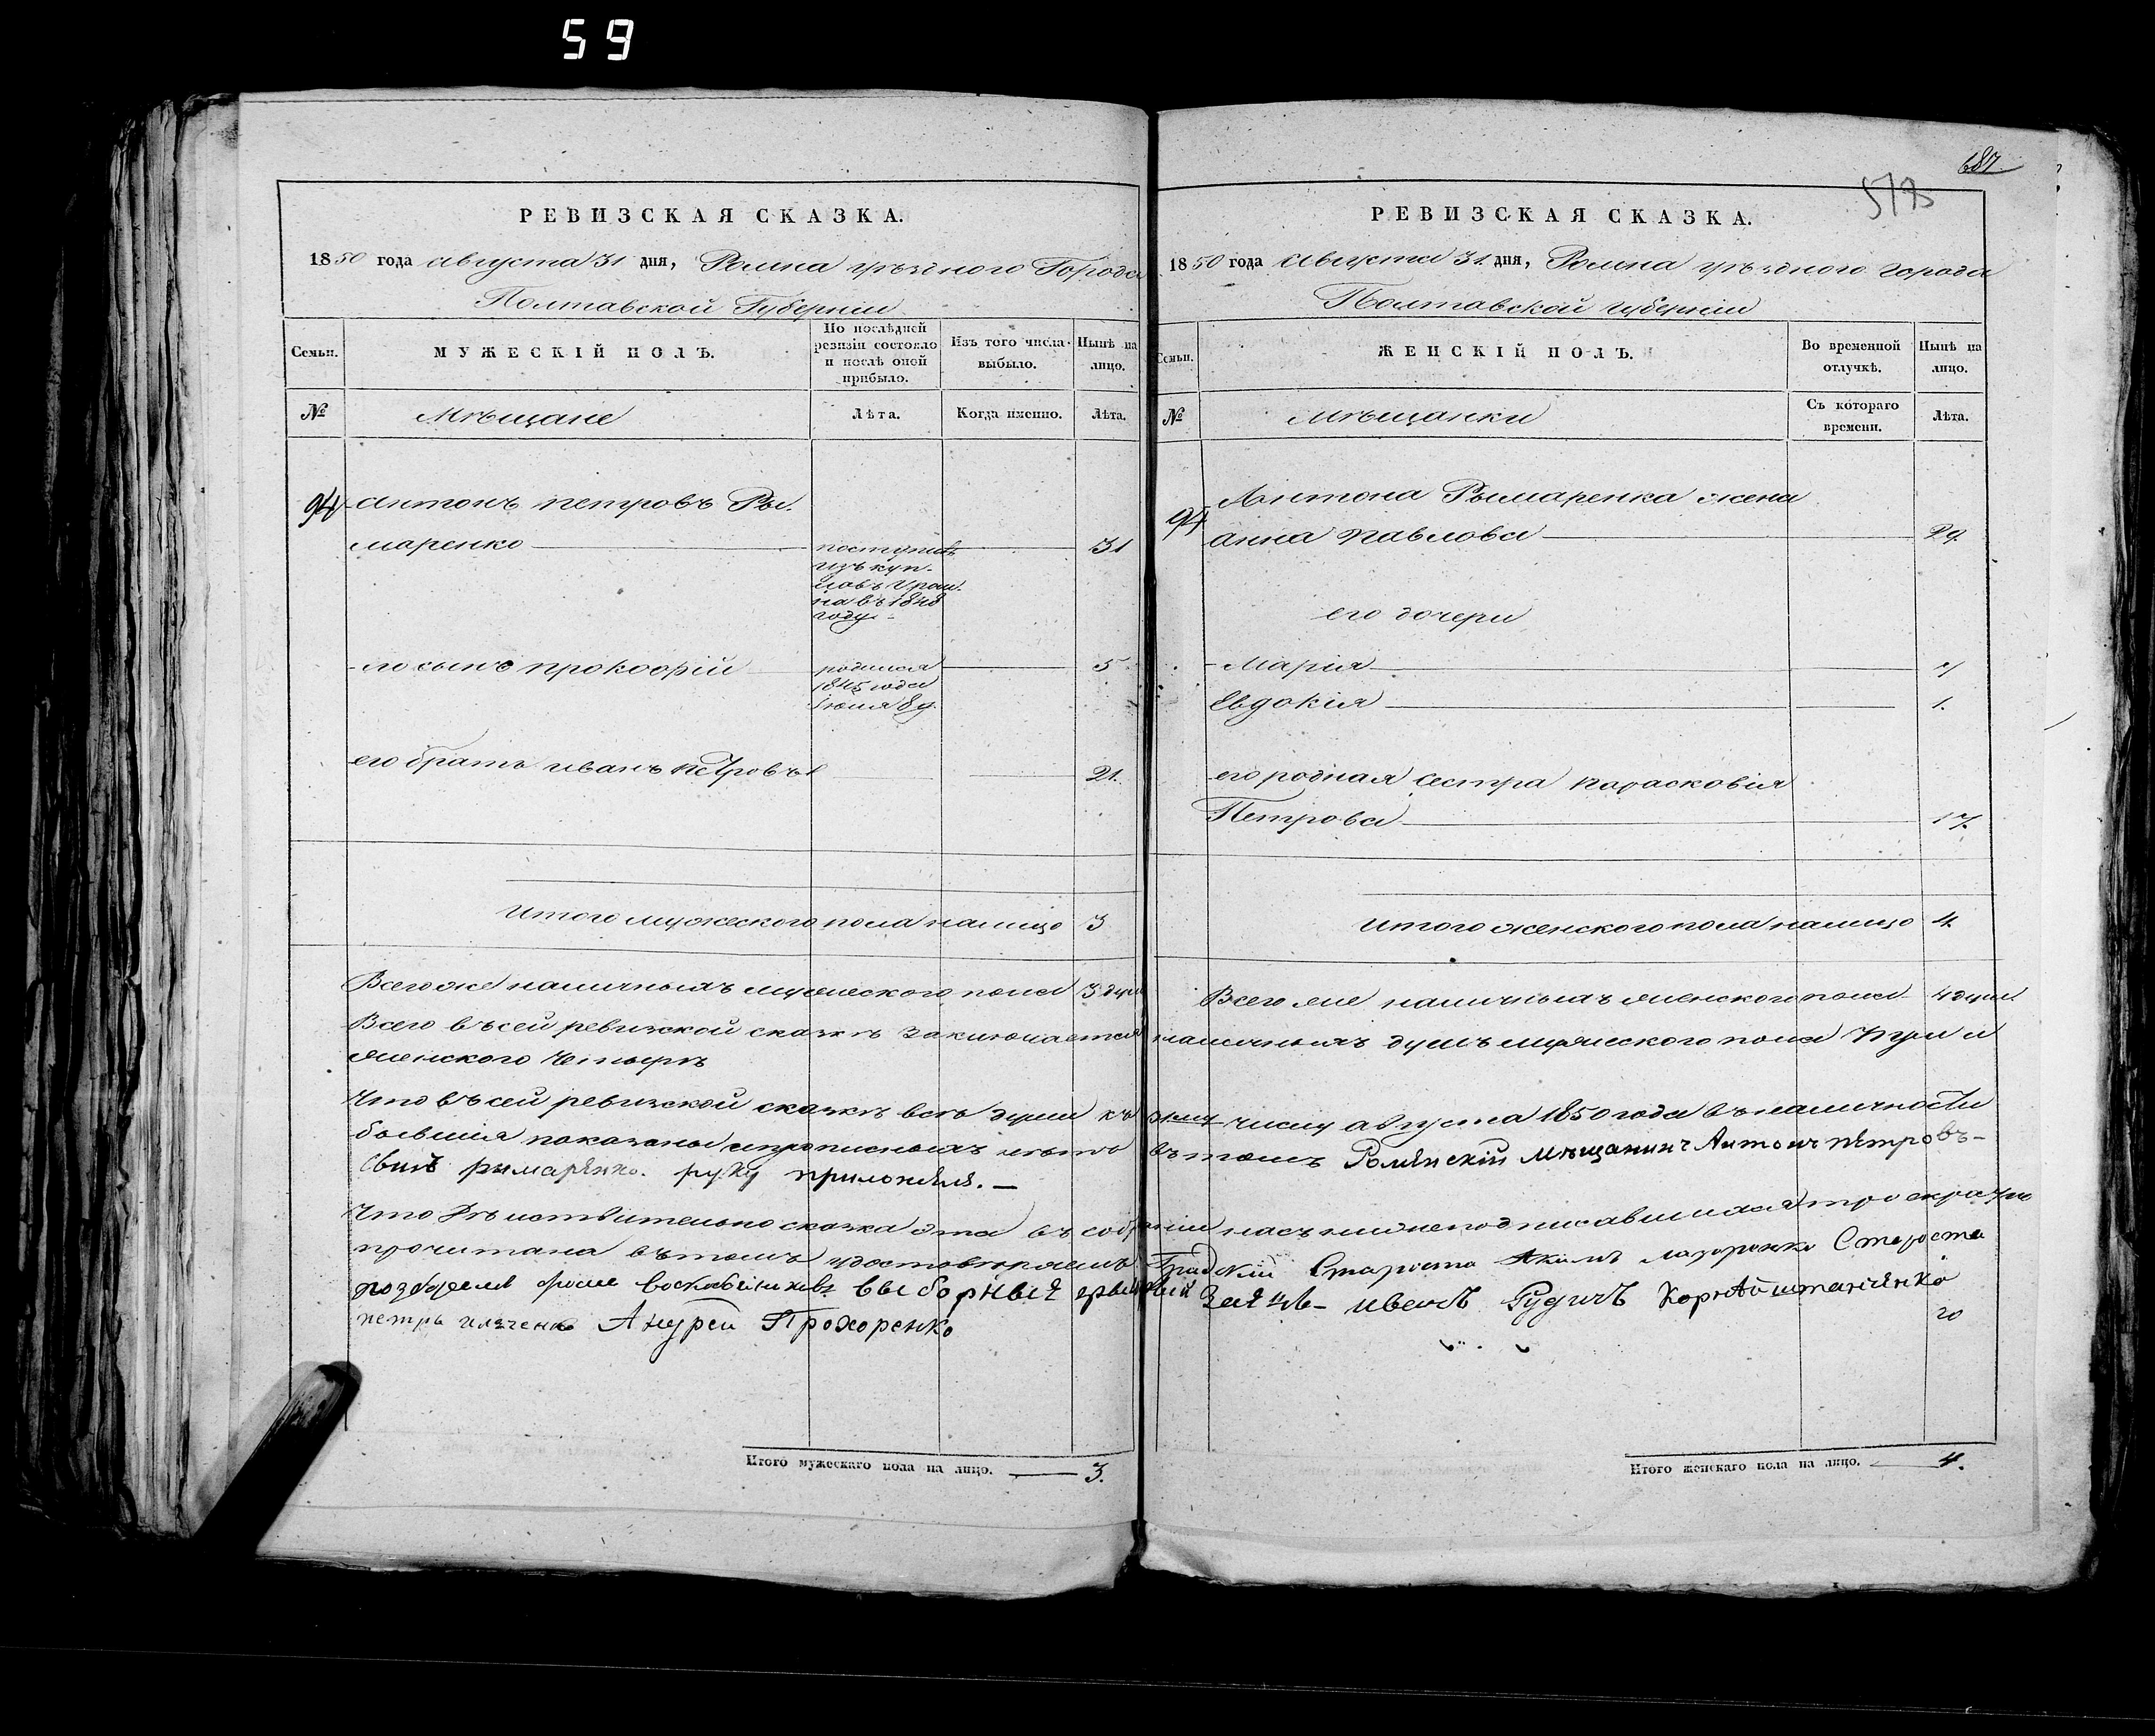 59
РЕВИЗСКАЯ СКАЗКА.
1850 года августа 31 дня, Ромна уѣзднаго Города
Полтавской Губерніи
Семьи.
МУЖЕСКІЙ ПОЛЪ.
По послѣдней
ревизіи состояло
и послѣ оной
прибыло.
Изъ того числа
выбыло.
Нынѣ на
лицо.
№
Мѣщане
Лѣта.
Когда именно.
Лѣта.
94 антонъ петровъ Ры.
маренко
поступивъ
изъ куп-
на въ 1848
году
31
его сынъ прокофій
родился
1845 года
Іюля 8 д.
5
его братъ иванъ петровъ
21.
итого мужеского пола налицо 3
Всего же наличныхъ мужеского пола 3 душ
Итого мужескаго пола на лицо. 3.
687
РЕВИЗСКАЯ СКАЗКА.
1850 года августа 31. дня, Ромна уѣздного города
Полтавской губерніи
Семьи.
ЖЕНСКІЙ ПОЛЪ.
Во временной
отлучкѣ.
Нынѣ на
лицо.
№
мѣщанки
Съ котораго
времени.
Лѣта.
94
Антона Рымаренка жена
анна павлова 29.
его дочери
Марія 7
Евдокія 1.
его родная сестра парасковія
Петрова 17.
итого женского пола налицо 4.
Всего же наличныхъ женского пола 4 душ.
Всего въ сей ревизской сказкѣ заключается наличныхъ душъ мужеского пола три и
женского четыре
Что въ сей ревизской сказкѣ всѣ души къ числу августа 1850 года въ наличности
бывшія показаны и прописныхъ нѣтъ въ томъ Роменскій Мѣщанинъ Антонъ петровъ-
сынъ рымаренко. руку приложилъ.—
Что Дѣйствительно сказка эта въ собраніи насъ нижеподписавшихся троекратно
прочитана въ томъ удостовѣряемъ Градскій Староста Акимъ лазоренко Староста
выборныя Заяцъ- иванъ Рудичъ
петръ Андрей Прохоренко
20
Итого женскаго пола на лицо. 4.